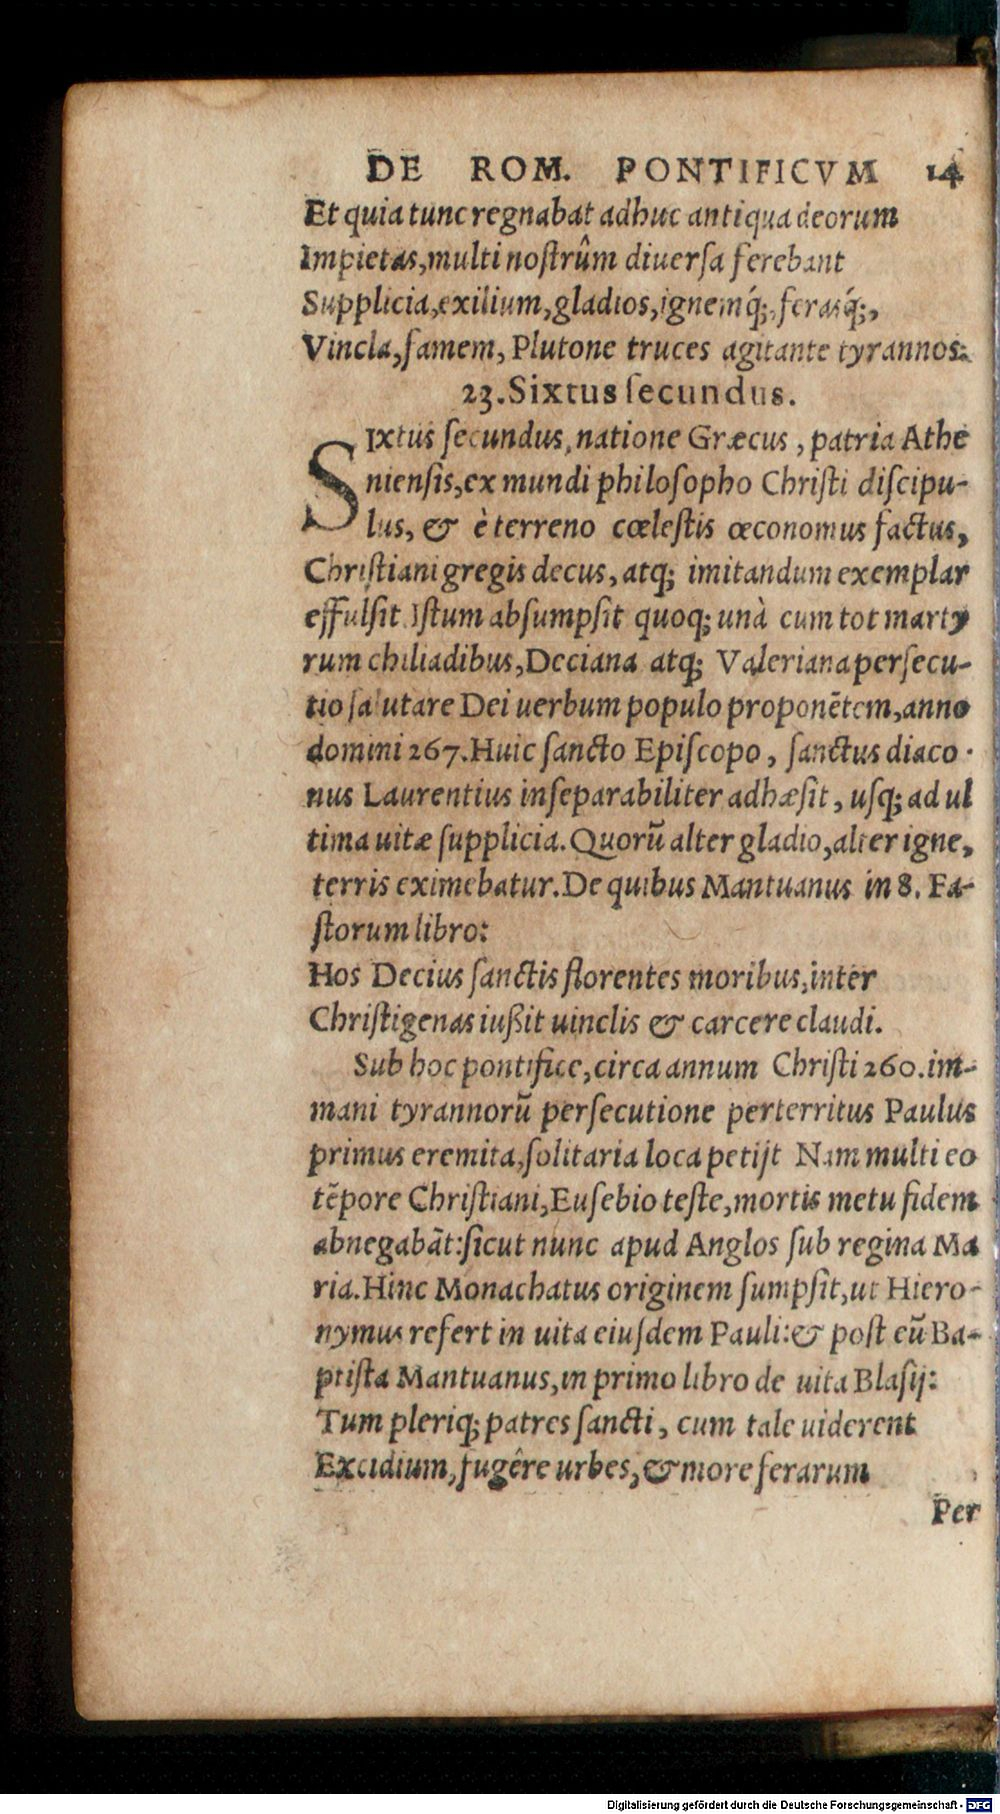 DE ROM. PONTIFICVM 14
Et quia tunc regnabat adhuc antiqua deorum
Impietas, multi nostrûm diuersa ferebant
Supplicia, exilium, gladios, ignemq́;, ferasq́;,
Vincla, famem, Plutone truces agitante tyrannos.
23. Sixtus ſecundus.
SIxtus ſecundus, natione Græcus, patria Athe
nienſis, ex mundi philoſopho Chriſti diſcipu-
lus, & è terreno cœleſtis œconomus factus,
Chriſtiani gregis decus, atq; imitandum exemplar
effulſit. Iſtum abſumpſit quoq; unà cum tot marty
rum chiliadibus, Deciana atq; Valeriana perſecu-
tio ſalutare Dei uerbum populo proponẽtem, anno
domini 267. Huic ſancto Epiſcopo, ſanctus diaco-
nus Laurentius inſeparabiliter adhæſit, uſq; ad ul
tima uitæ ſupplicia. Quorũ alter gladio, alter igne,
terris eximebatur. De quibus Mantuanus in 8. Fa-
ſtorum libro:
Hos Decius ſanctis florentes moribus, inter
Chriſtigenas iußit uinclis & carcere claudi.
Sub hoc pontifice, circa annum Chriſti 260. im-
mani tyrannorũ perſecutione perterritus Paulus
primus eremita, ſolitaria loca petijt Nam multi eo
tẽpore Chriſtiani, Euſebio teſte, mortis metu fidem
abnegabãt: ſicut nunc apud Anglos ſub regina Ma
ria. Hinc Monachatus originem ſumpſit, ut Hiero-
nymus refert in uita eiuſdem Pauli: & poſt eũ Ba-
ptiſta Mantuanus, in primo libro de uita Blaſij:
Tum pleriq; patres ſancti, cum tale uiderent
Excidium, fugêre urbes, & more ferarum
Per
Digitalisierung gefördert durch die Deutsche Forschungsgemeinschaft - DFG